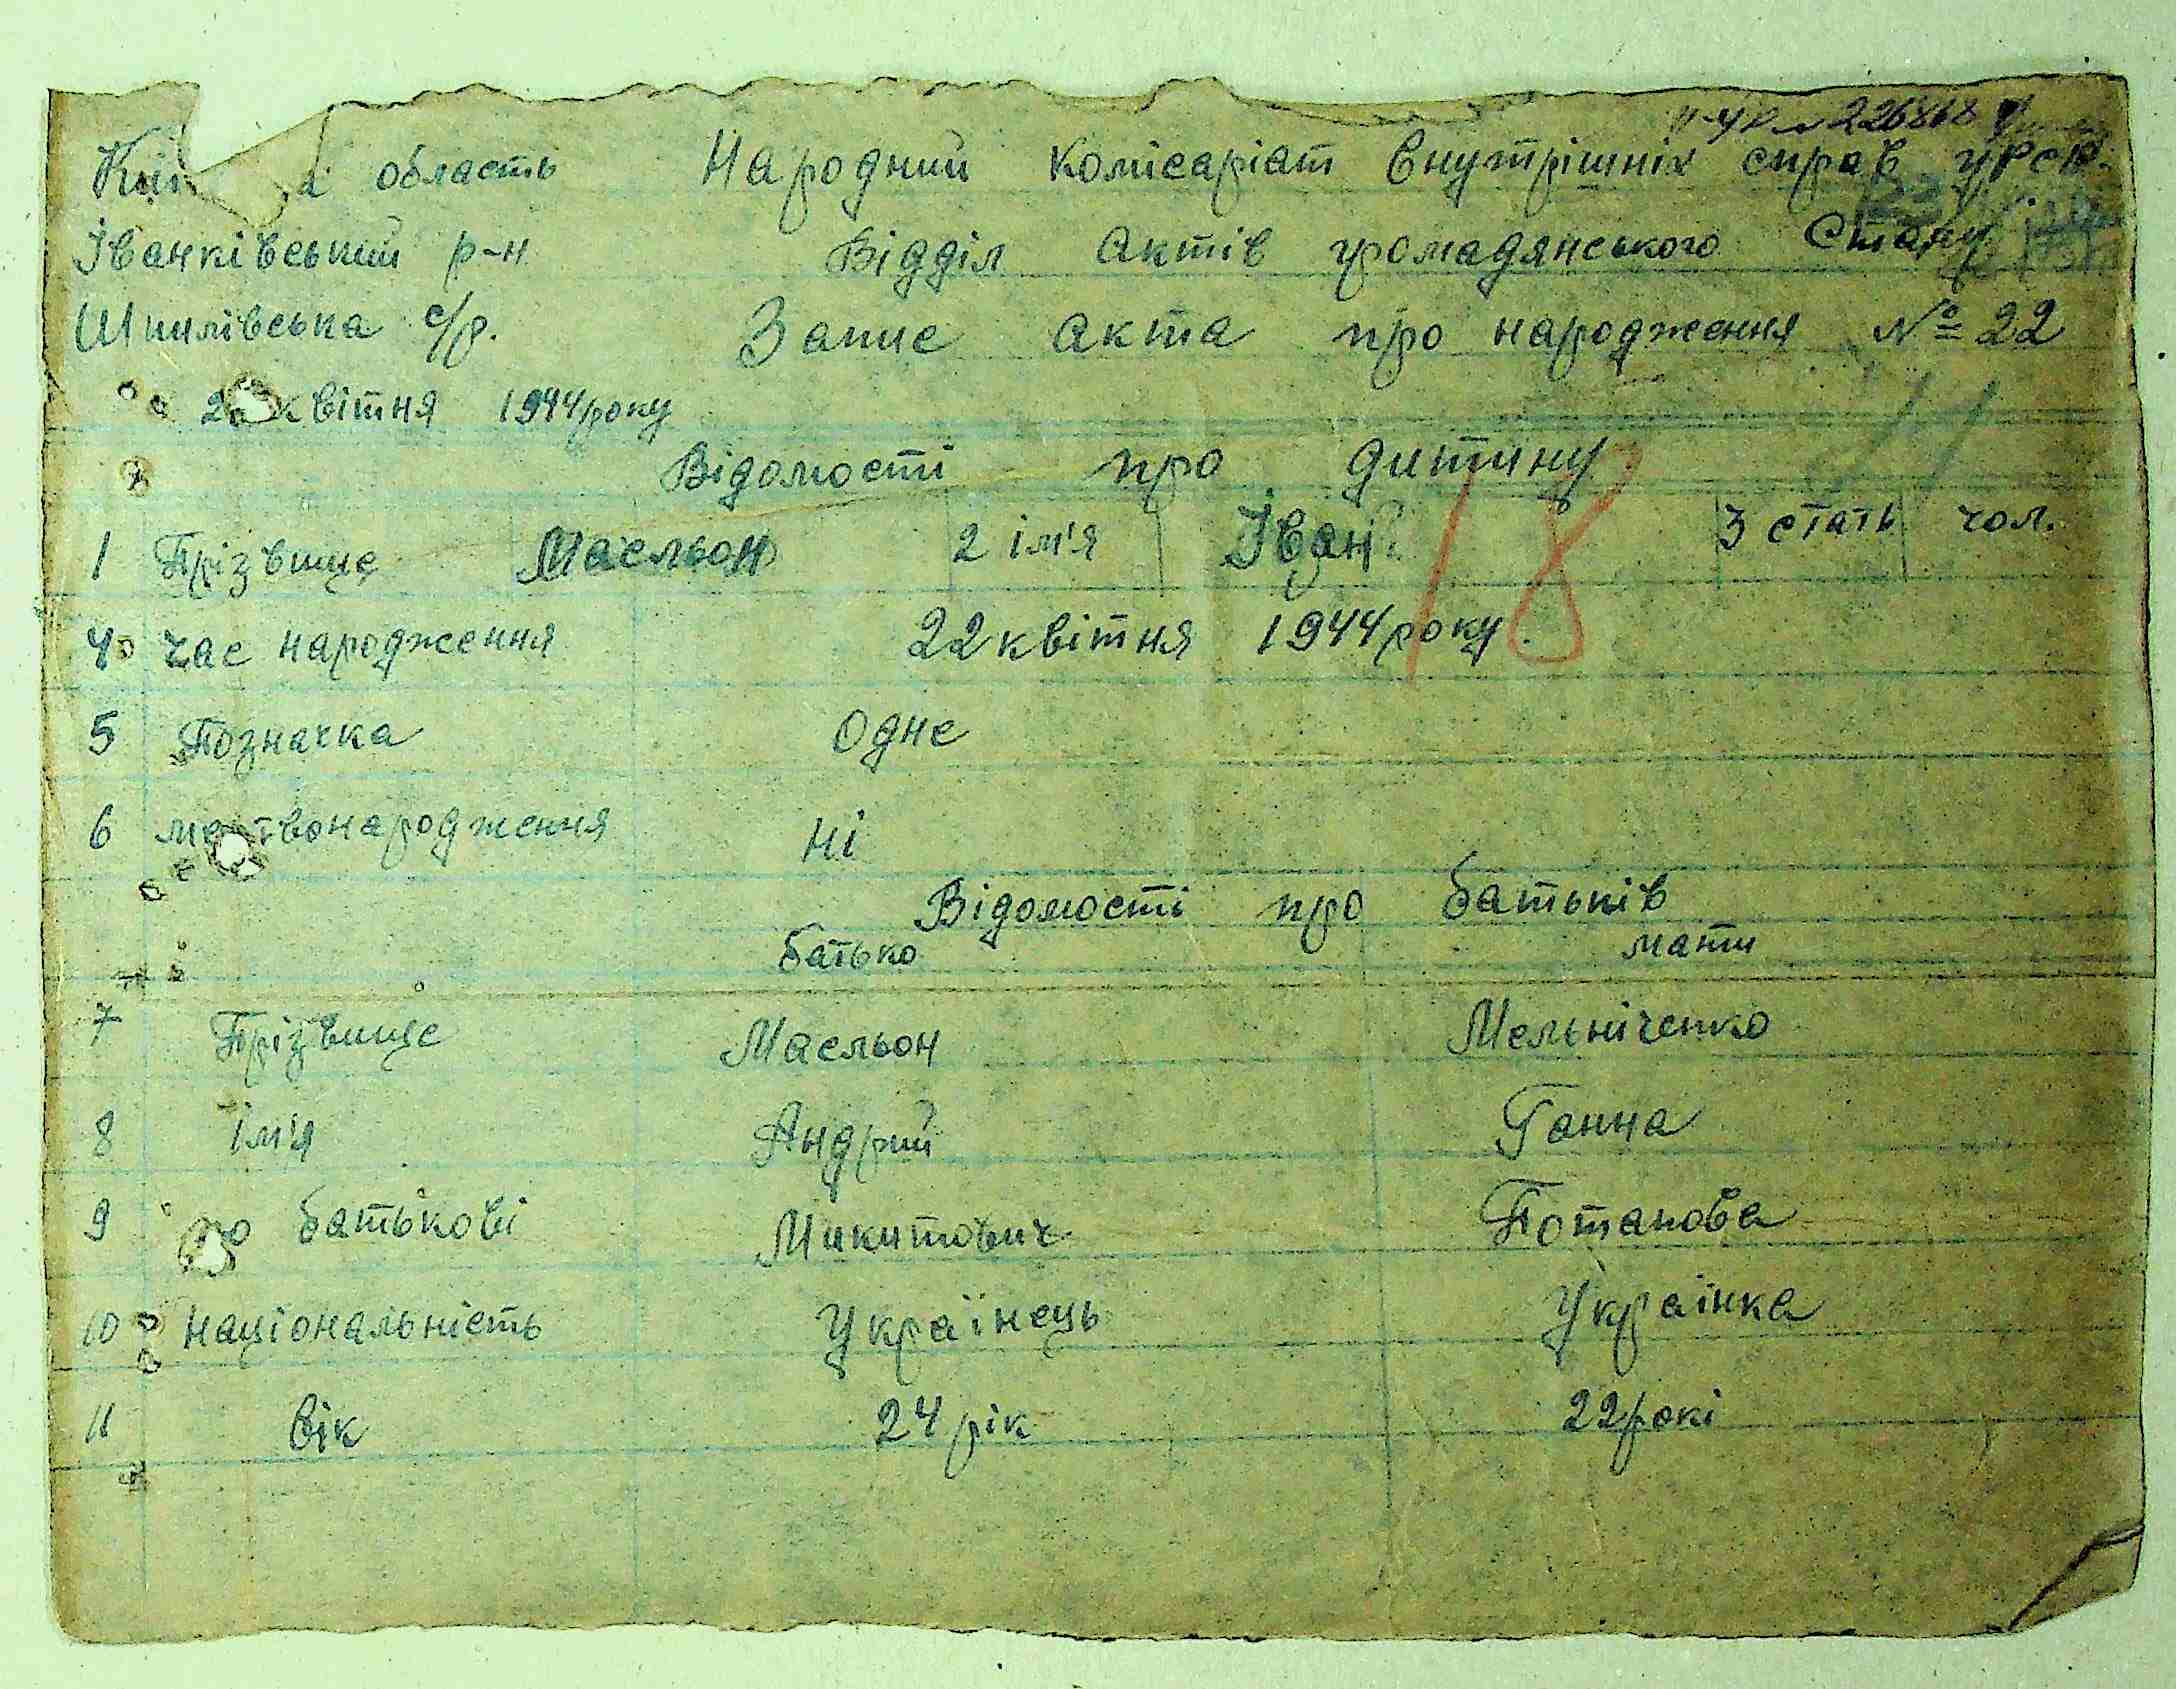 область Народний Комісаріат Внутрішніх справ УРСР.
Іванківський р-н Відділ Актів громадянського Стану
Шпилівська с/р. Запис Акта про народження № 22
квітня 1944 року
Відомості про дитину
18
1 Прізвище Масльон 2 ім'я Іван 3 стать чол.
4 час народження 22 квітня 1944 року.
5 Позначка Одне
6 мертвонародження Ні
Відомості про батьків
батько мати
7 Прізвище Масльон Мельніченко
8 ім'я Андрий Ганна
9 по батькові Микитович Потапова
10 національність Українець Українка
11 вік 24 рік 22 рокі